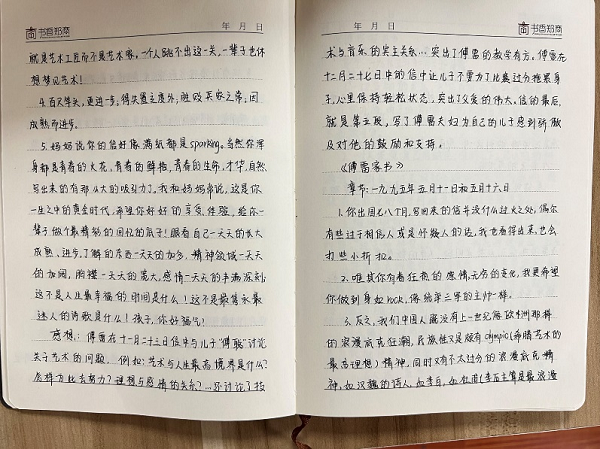 书香郑商
年 月 日
就是艺术工匠而不是艺术家。一个人跳不出这一关，一辈子也休
想梦见艺术！
4.百尺竿头，更进一步，得失置之度外，胜败兵家之常，因
成熟而进步。
5.妈妈说你的信好像满纸都是sparkling。当然你浑
身都是青春的火花，青春的鲜艳，青春的生命、才华，自然
写出来的有那么大的吸引力了。我和妈妈常说，这是你
一生之中的黄金时代，希望你好好的享受、体验，给你一
辈子做个最精彩的回忆的底子！眼看自己一天天的长大
成熟，进步，了解的东西一天天的加多，精神领域一天天
的加阔，胸襟一天天的宽大，感情一天天的丰满深刻：
这不是人生最幸福的时间是什么！这不是最隽永最
迷人的诗歌是什么！孩子，你好福气！
感想：傅雷在十一月二十三日信中与儿子“傅聪”讨论
关于艺术的问题。例如：艺术与人生最高境界是什么？
怎样为此去努力？理想与感情的关系？…还讨论了技
书香郑商
年 月 日
术与音乐的宾主关系…突出了傅雷的教学有方。傅雷在
十二月二十七日中的信中让儿子不要为了比赛过分拖累身
子，心里保持轻松状态，突出了父爱的伟大。信的最后，
就是第五段，写了傅雷夫妇为自己的儿子感到骄傲
及对他的鼓励和支持。
《傅雷家书》
章节：一九五五年五月十一日和五月十六日
1.你出国七八个月，写回来的信并没什么过火之处，偶尔
有些过于相信人或是怀疑人的话，我也看得出来，也会
打些小折扣。
2.唯其你有着狂热的感情，无穷的变化，我更希望
你做到身如rock，像统率三军的主帅一样。
3.反之，我们中国人既没有上一世纪像欧洲那样
的浪漫底克狂潮，民族性又是颇有olympic(希腊艺术的
最高理想)精神，同时又有不太过分的浪漫底克精
神，如汉魏的诗人，如李白，如杜甫(李后主算是最浪漫